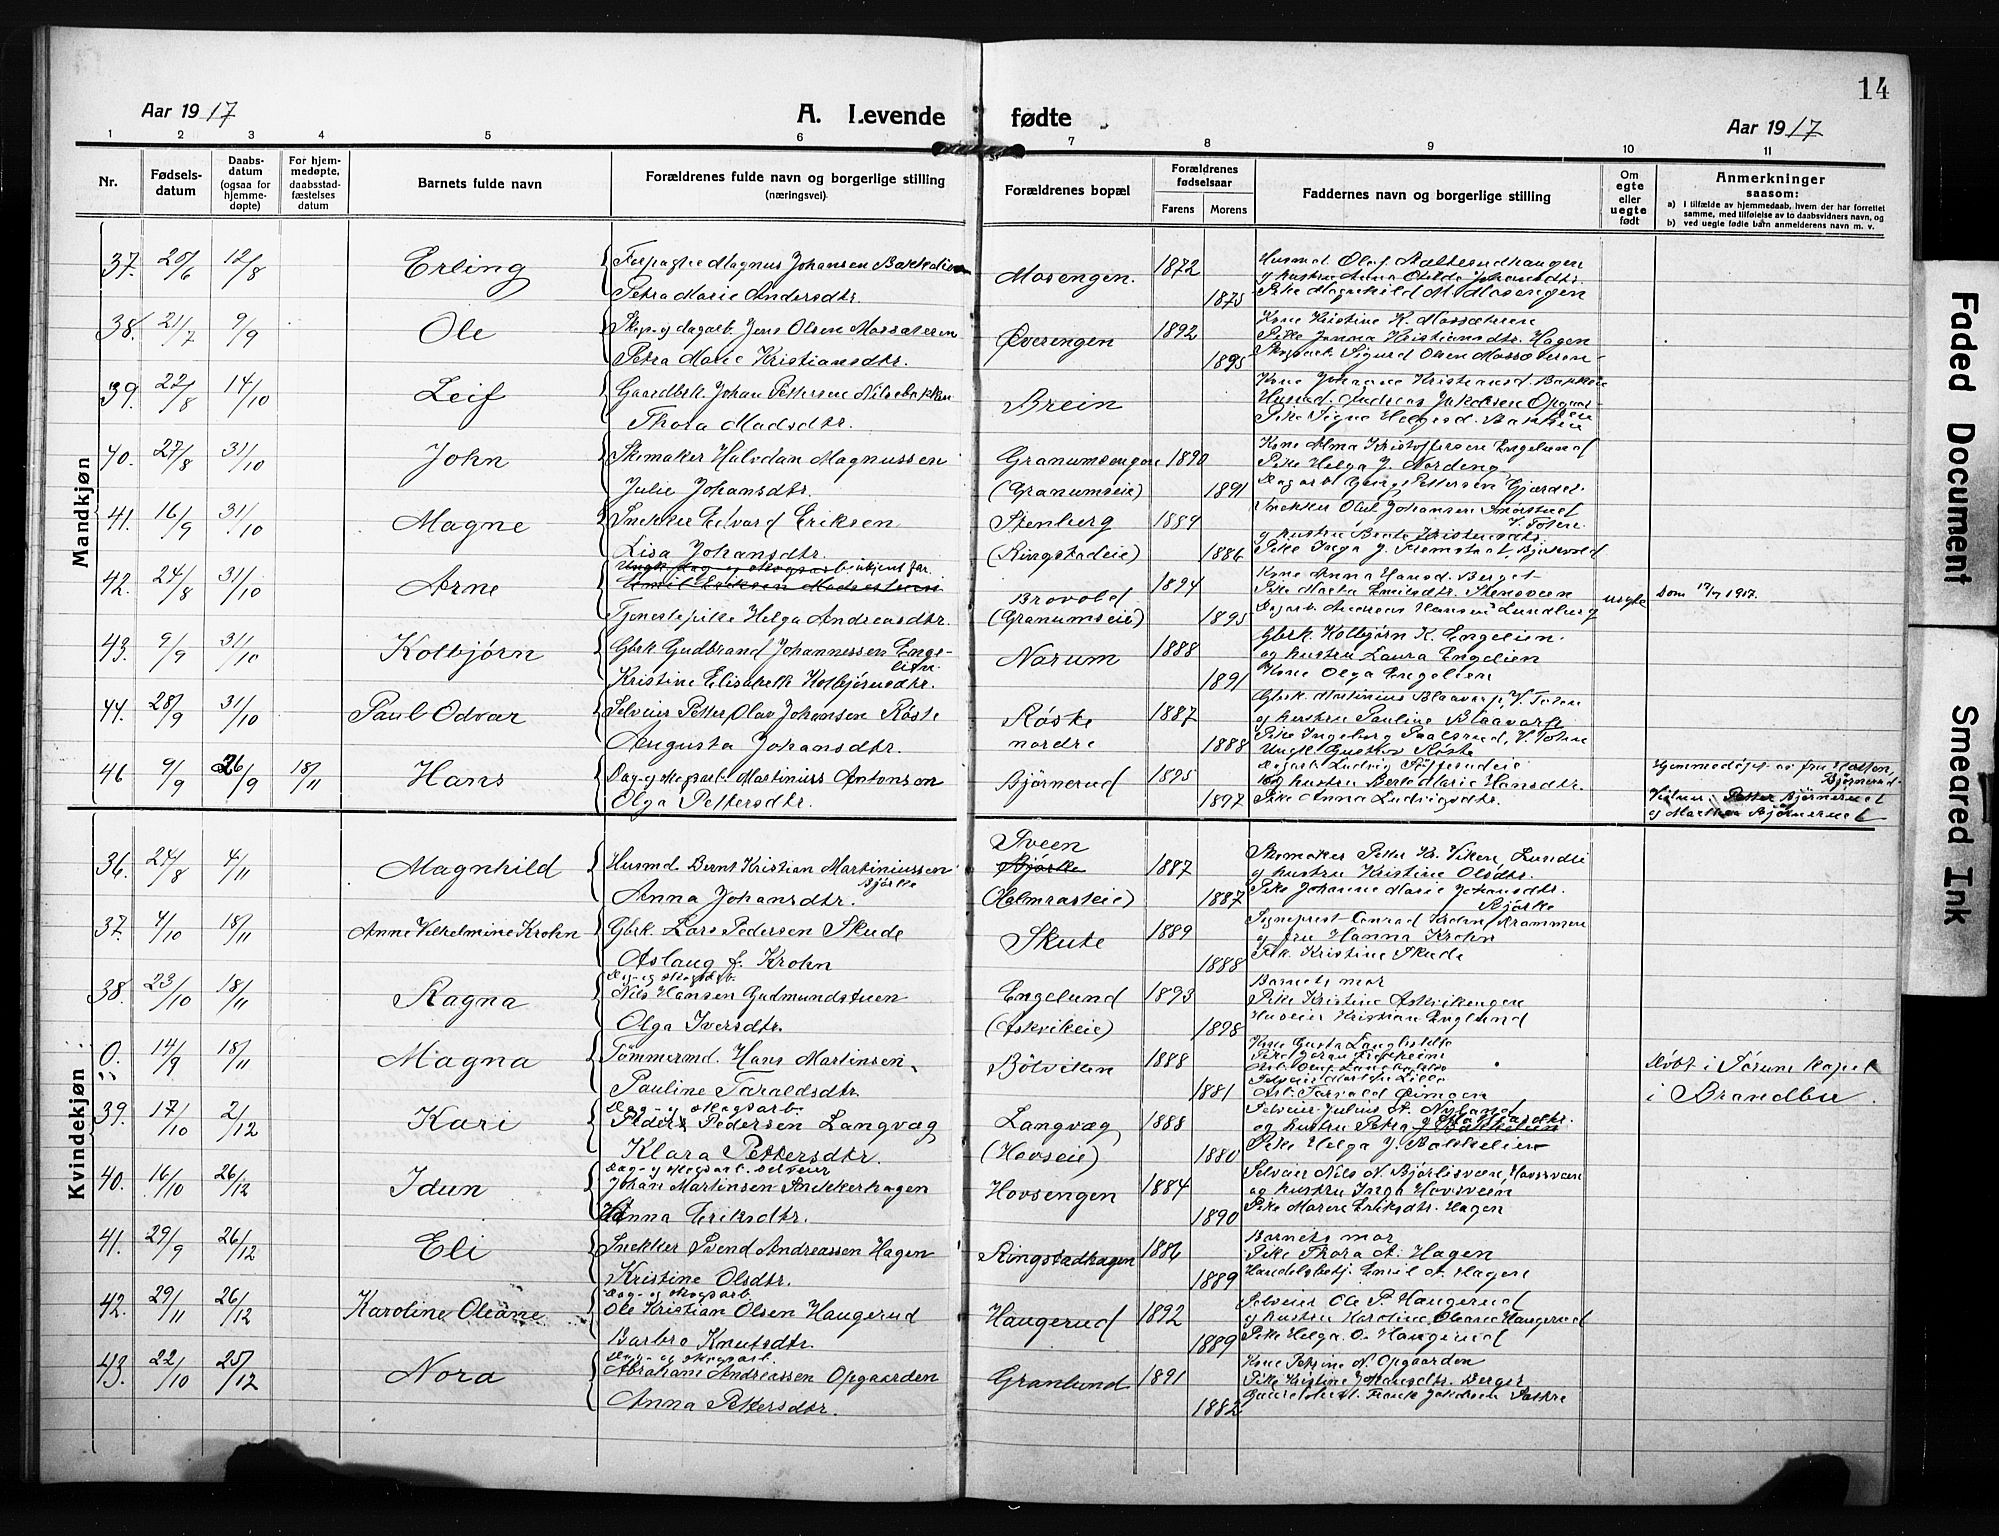 14
Aar 1917
A. Levende fødte
Aar 1917
1 2 3 4 5 6 7 8 9 10 11
Nr.
Fødsels-
datum
Daabs-
datum
(ogsaa for
hjemme-
døpte)
For hjem-
medøpte,
daabsstad-
fæstelses
datum
Barnets fulde navn
Forældrenes fulde navn og borgerlige stilling
(næringsvei)
Forældrenes bopæl
Forældrenes
fødselsaar
Farens Morens
Faddernes navn og borgerlige stilling
Om
egte
eller
uegte
født
Anmerkninger
saasom:
a) i tilfælde av hjemmedaab, hvem der har forrettet
samme, med tilføielse av to daabsvidners navn, og
b) ved uegte fødte barn anmelderens navn m. v.
Mandkjøn
37. 20/6 12/8 Erling Magnus Johansen Bakkelien Mosengen. 1872
Petra Marie Andersdtr. 1875
og hustru Anna Otilde Johansdtr.
Pike Magnhild M. Mosengen
38. 21/7 9/9 Ole Skogs- og dagarb. Jens Olsen Mossæteren Øverengen 1892
Petra Marie Kristiansdtr. 1895
Kone Kristine K. Mossæteren
Pike Janna Kristiansdtr. Hagen
Skogsarb. Sigurd Olsen Mossæteren
39. 22/8 14/10 Leif Gaardbrk. Johan Pettersen Nilsebakken Brein
Thora Madsdtr.
Kone Johanne Kristiansd. Bakken
Pike Signe Helgesd. Bakken
40. 27/8 31/10 John Skomaker Halvdan Magnussen Granumsengen 1890
Julie Johansdtr. (Granumseie) 1891
Kone Alma Kristoffersen Engelund
Pike Helga J. Nordeng
Dagarb. Georg Pettersen Gjærdet
41. 16/9 31/10 Magne Snekker Edvard Eriksen Stenberg 1884
Lisa Johansdtr. (Ringstadeie) 1886
Snekker Olul Johansen
V. Toten
og hustru Beate Kristensdtr.
42. 24/8 31/10 Arne Ungk. dag- og skogsarb. utkjent far. Brovold 1894
Emil Eriksen
Tjenestepike Helga Andreasdtr. (Granumseie) 1895
Kone Anna Hansd. Berget
Pike Marta Emilsdtr. Stensveen
Dagarb. Andreas Hansen Lundberg
uegte
43. 9/9 31/10 Kolbjørn Gbrk. Gudbrand Johannessen Enge-
lien. Narum 1888
Kristine Elisabeth Kolbjørnsdtr. 1891
Gbrk. Kolbjørn K. Engelien.
og hustru Laura Engelien
Kone Olga Engelien
44. 28/9 31/10 Paul Odvar Selveier Petter Olav Johansen Røste Røste 1887
Augusta Johansdtr. nordre 1888
Gbrk. Martinius Blaavarp, V. Toten
og hustru Pauline Blaavarp
Pike Ingeborg Paalsrud, V. Toten
Ungk. Gustav Røste
46 9/9 26/9 18/11 Hans Dag- og skogsarb. Martinius Antonsen Bjørnerud 1895
Olga Pettersdtr. 1897
og hustru Berte Marie Hansdtr.
Pike Anna Ludvigsdtr.
Hjemmedøpt av fru
Bjørnerud.
Vidner: Petter Bjørnerud
og Marthea Bjørnerud
Kvindekjøn
36. 24/8 4/11 Magnhild Husmd. Bernt Kristian Martiniussen
Bjørke Sveen 1887
Bjørke
Anna Johansdtr. (Helmrasteie) 1887
Skomaker Petter Kr. Viken, Lundri
og hustru Kristine Olsdtr.
Pike Johanne Marie Johansdtr.
Bjørke
37. 4/10 18/11 Anne Vilhelmine Krohn Gbrk. Lars Pedersen Skude Skute 1889
Aslaug f. Krohn 1888
Sogneprest Conrad Krohn, Drammen
og fru Hanna Krohn
Frk. Kristine Skude
38. 23/10 18/11 Ragna Dag- og skogsarb.
Nils Hansen Gudmundstuen Engelund 1893
Olga Iversdtr. (Askvikeie) 1898
Barnets mor
Pike Kristine Askvikengen
Huseier Kristian Englund
0. 14/9 18/11 Magna Tømmermd. Hans Martinsen Bølviken 1888
Pauline Taraldsdtr. 1881
Døbt i Sørum kapel
i Brandbu.
39. 17/10 2/12 Kari Dag- og skogsarb.
Peder Pedersen Langvæg Langvæg 1888
Klara Pettersdtr. (Hovseie) 1880
Selveier Julius A. Nyland
Pike Helga J. Bakkelien
40. 16/10 26/12 Idun Dag- og skogsarb. Selveier
Johan Martinsen Snekkerhagen Hovsengen 1884
Anna Eriksdtr. 1890
Selveier Nils N. Bjørlisveen, Hovsveen
og hustru Inga Hovsveen
Pike Maren Eriksdtr. Hagen
41. 29/9 26/12 Eli Snekker Svend Andreassen Hagen Ringstadhagen 1886
Kristine Olsdtr. 1889
Barnets mor
Pike Thora A. Hagen
Handelsbetj. Emil A. Hagen
42. 29/11 26/12 Karoline Oleane Dag- og skogsarb.
Ole Kristian Olsen Haugerud Haugerud 1892
Barbro Knutsdtr. 1889
Selveier Ole P. Haugerud
og hustru Karoline Oleane Haugerud
Pike Helga O. Haugerud
43. 22/10 25/12 Nora Dag- og skogsarb.
Abraham Andreassen Opgaarden Granlund 1891
Anna Pettersdtr. 1882
Kone Petrine N. Opgaarden
Pike Kristine Johansdtr. Berger
Faded Document
Smeared Ink